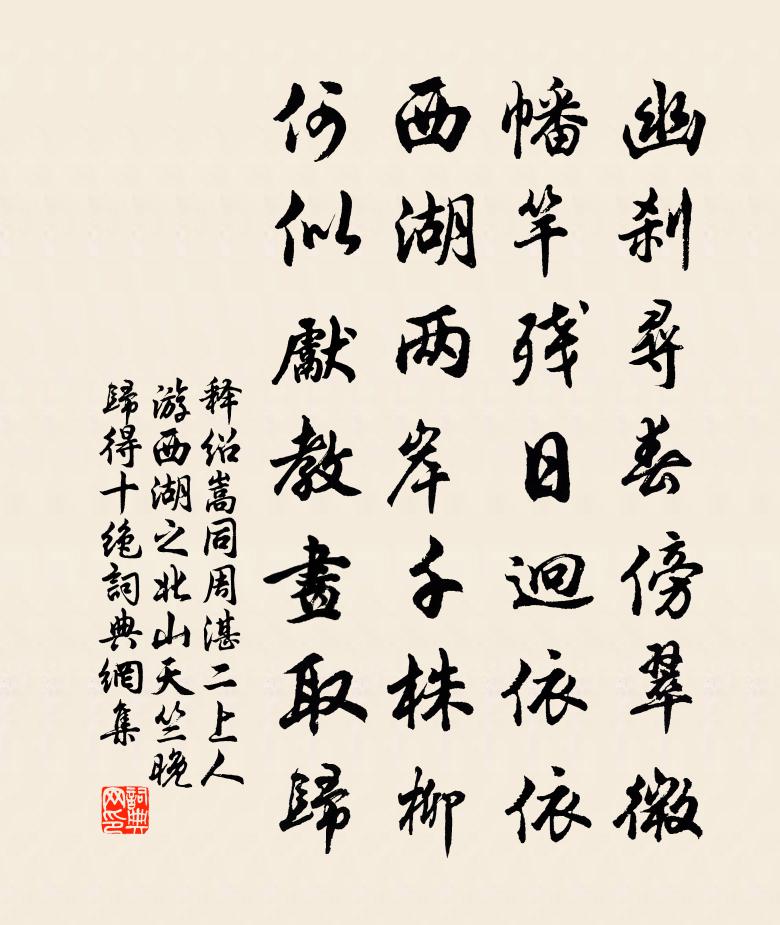 幽刹尋春傍翠微
幡竿残日迥依依
西湖两岸千株柳
何似獻教畫取歸
释绍嵩同周湛二上人
游西湖之北山天竺晚
歸得十绝詞典網集
詞典网印